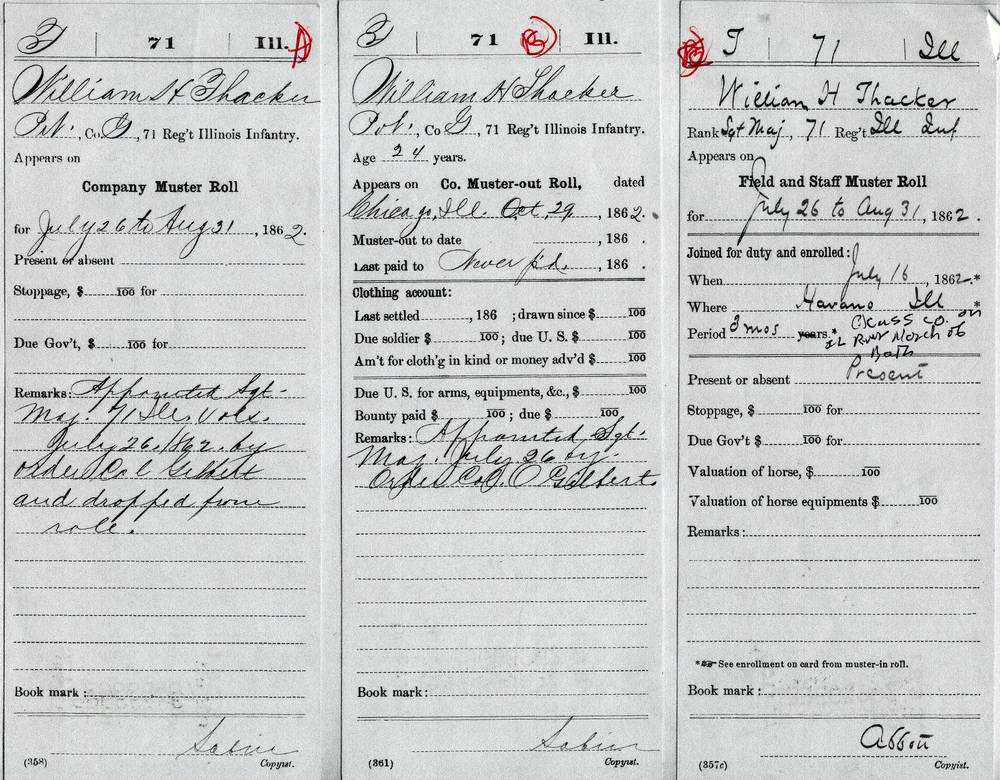 T | 71 | Ill. A
William H Thacker
Pvt., Co. G, 71 Reg't Illinois Infantry.
Appears on
Company Muster Roll
for July 26 to Aug 31, 1862.
Present or absent
Stoppage, $ 100 for
Due Gov't, $ 100 for
Remarks: Appointed Sgt-
Maj. 71 Ill. Vols.
July 26, 1862. by
order Col Gilbert
and dropped from
role.
Book mark:
Sabin
(358) Copyist.
T | 71 B | Ill.
William H Thacker
Pvt., Co G, 71 Reg't Illinois Infantry.
Age 24 years.
Appears on Co. Muster-out Roll, dated
Chicago, Ill. Oct, 29, 1862.
Muster-out to date , 186 .
Last paid to Never p'd. , 186 .
Clothing account:
Last settled , 186 ; drawn since $ 100
Due soldier $ 100; due U. S. $ 100
Am't for cloth'g in kind or money adv'd $ 100
Due U. S. for arms, equipments, &c., $ 100
Bounty paid $ 100; due $ 100
Remarks: Appointed Sgt.
Maj. July 26 by
Order Col. O Gilbert
Book mark:
Sabin
(361) Copyist.
T | 71 | Ill
William H Thacker
Rank Sgt Maj, 71 Reg't Ill Inf
Appears on
Field and Staff Muster Roll
for July 26 to Aug 31, 1862.
Joined for duty and enrolled:
When July 16, 1862.*
Where Havana Ill *
Period 3 mos years.* Cass Co. on
IL River North of
Bath
Present or absent Present
Stoppage, $ 100 for
Due Gov't $ 100 for
Valuation of horse, $ 100
Valuation of horse equipments $ 100
Remarks:
* See enrollment on card from muster-in roll.
Book mark:
Abbott
(357c) Copyist.